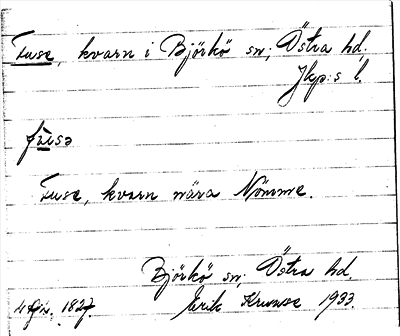 Fuse, kvarn i Björkö sn; Östra hd.
Jkp:s l.
fùsə
Fuse, kvarn nära Nömme.
Björkö sn; Östra hd.
1827. Erik 1933.